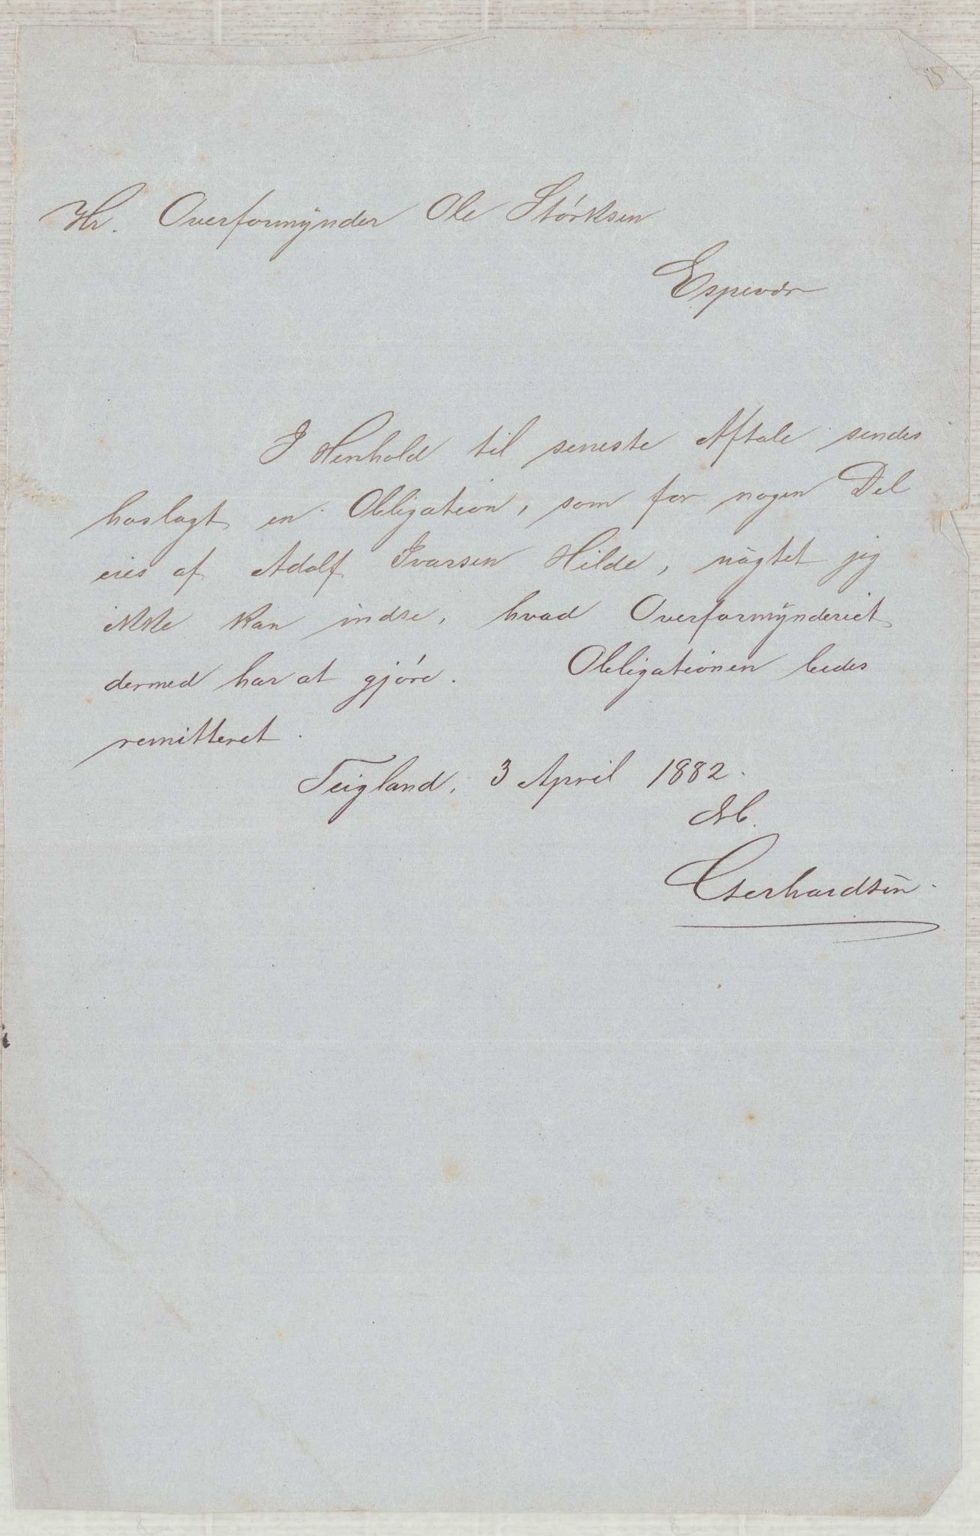 Hr. Overformynder Ole Størksen
Espevær
I Henhold til seneste Aftale sendes
hoslagt en Obligation, som for nogen Del
eies af Adolf Ivarsen Hilde, uagtet jeg
ikke kan indse, hvad Overformynderiet
dermed har at gjøre. Obligationen bedes
remitteret.
Teigland, 3 April 1882.
Gerhardsen.